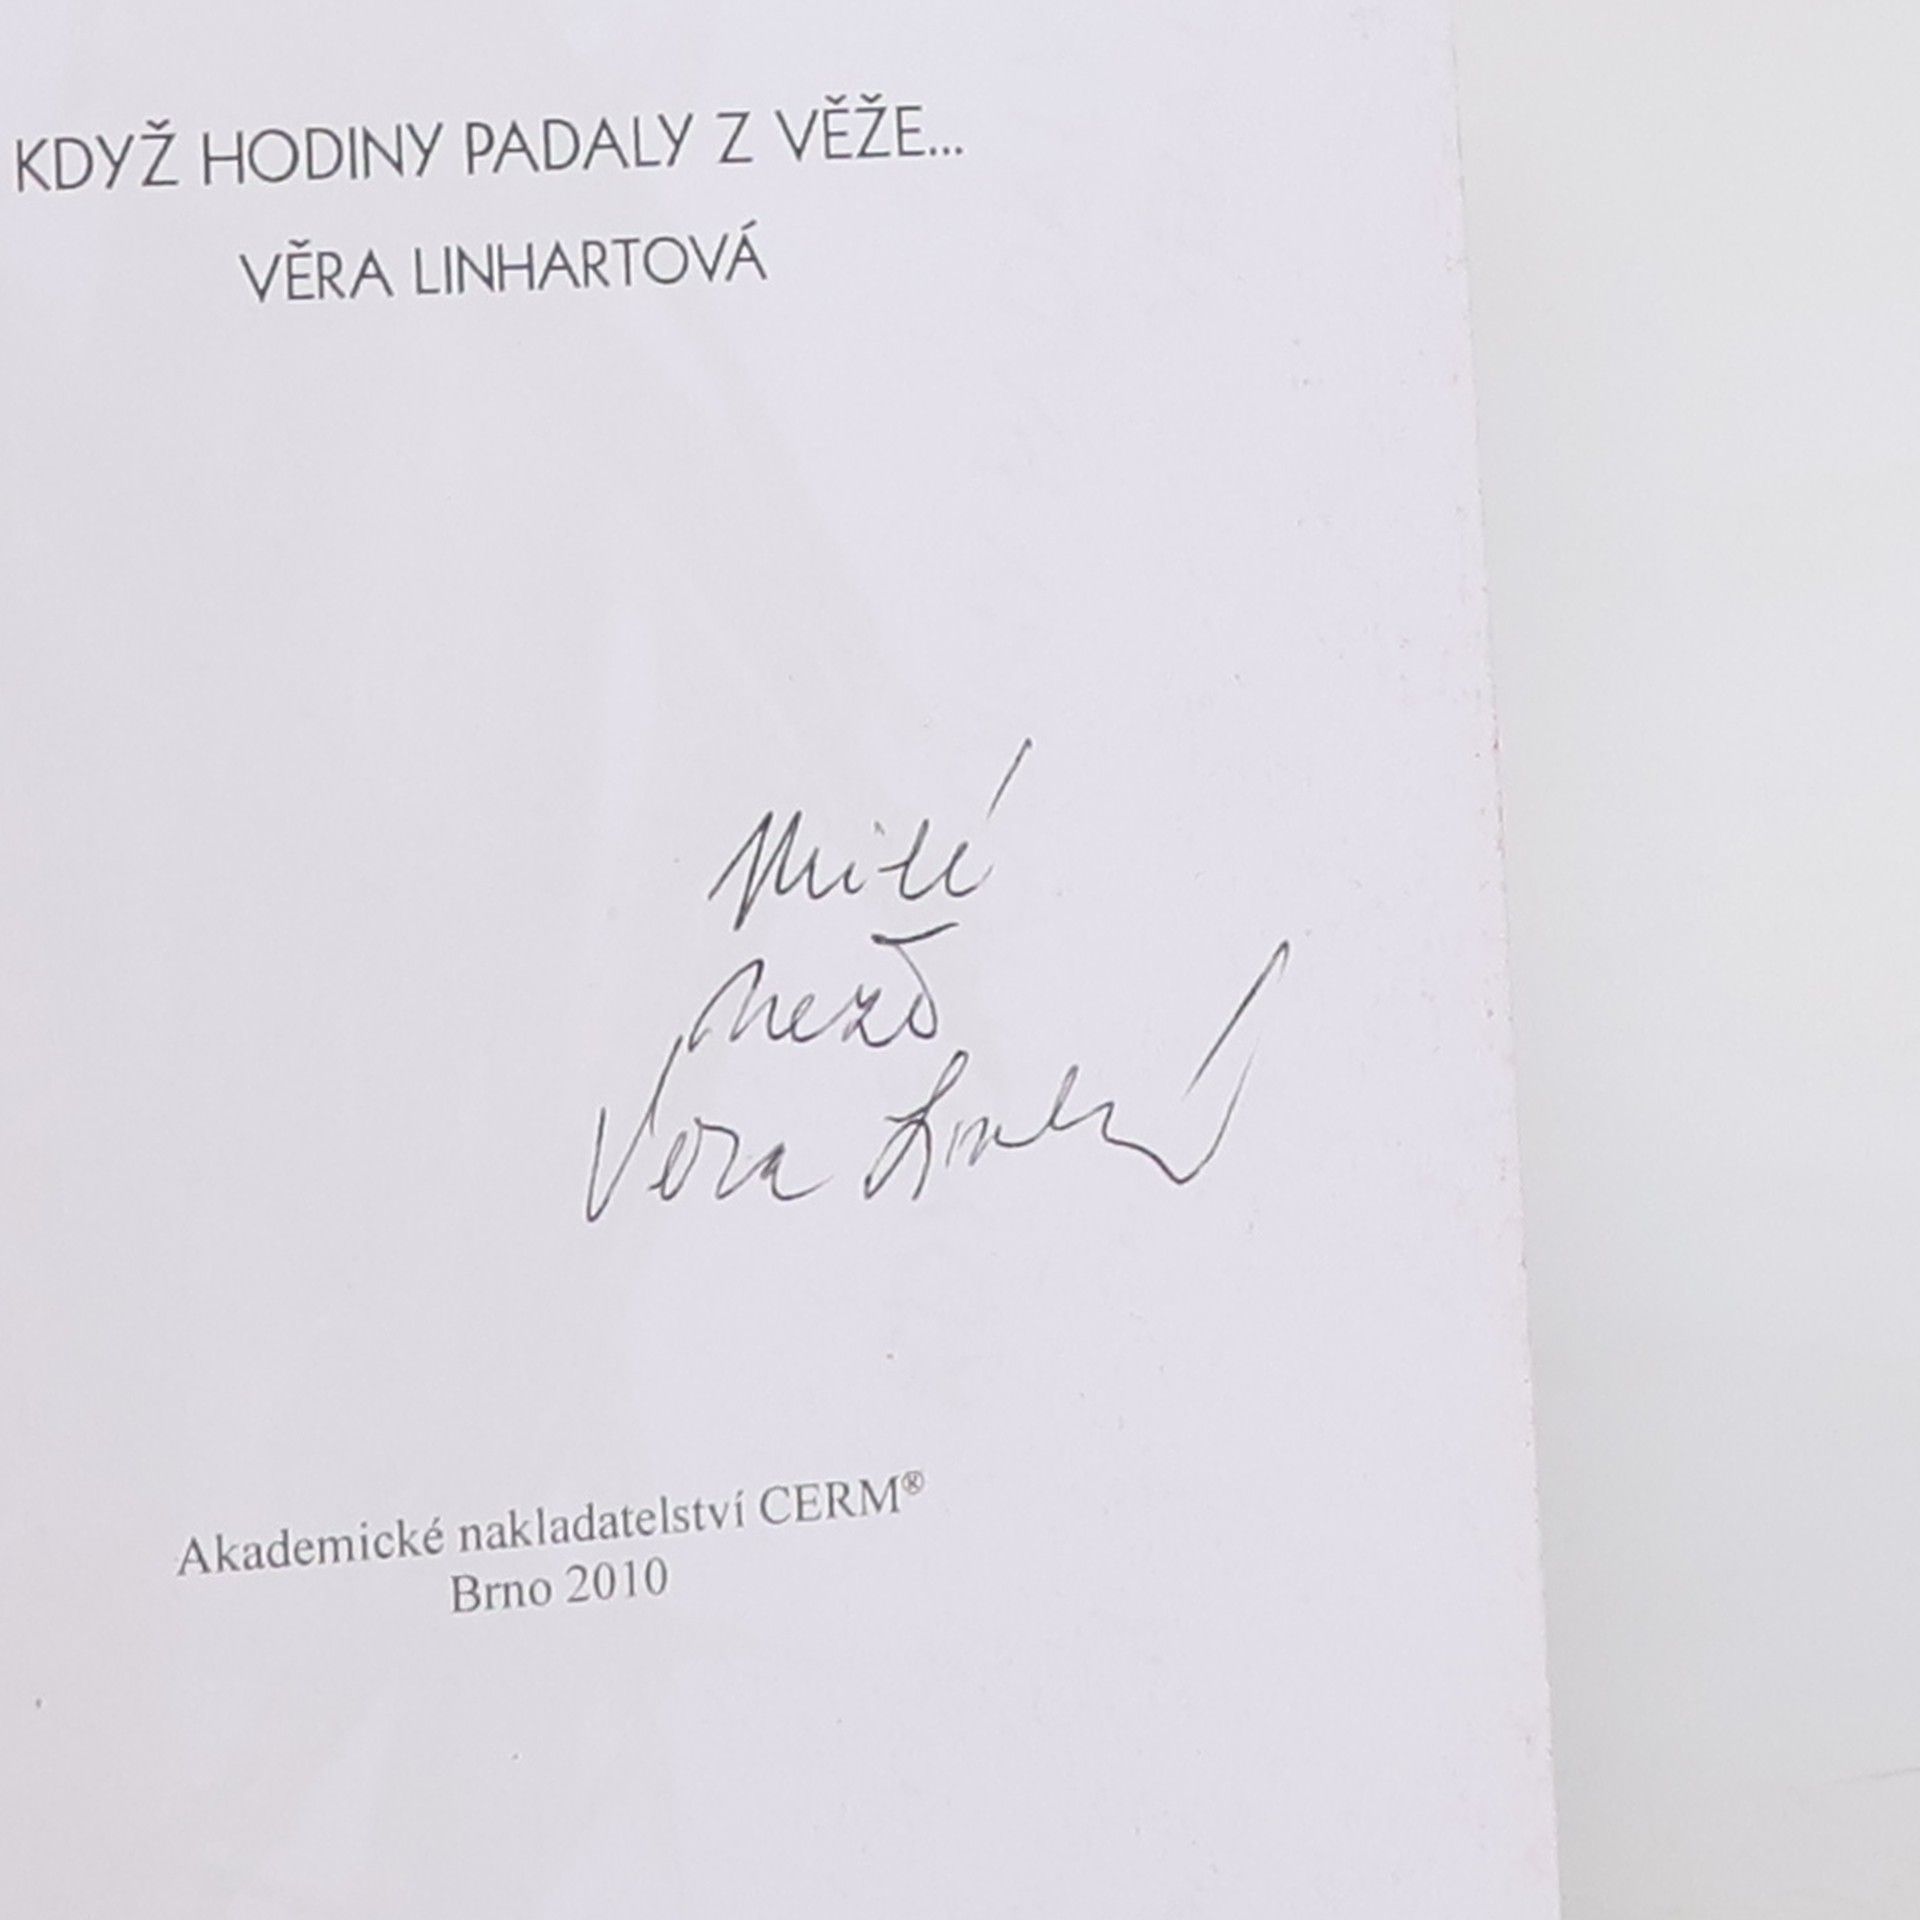 KDYŽ HODINY PADALY Z VĚŽE...
VĚRA LINHARTOVÁ
Milé
Věra Linhartová
Akademické nakladatelství CERM®
Brno 2010